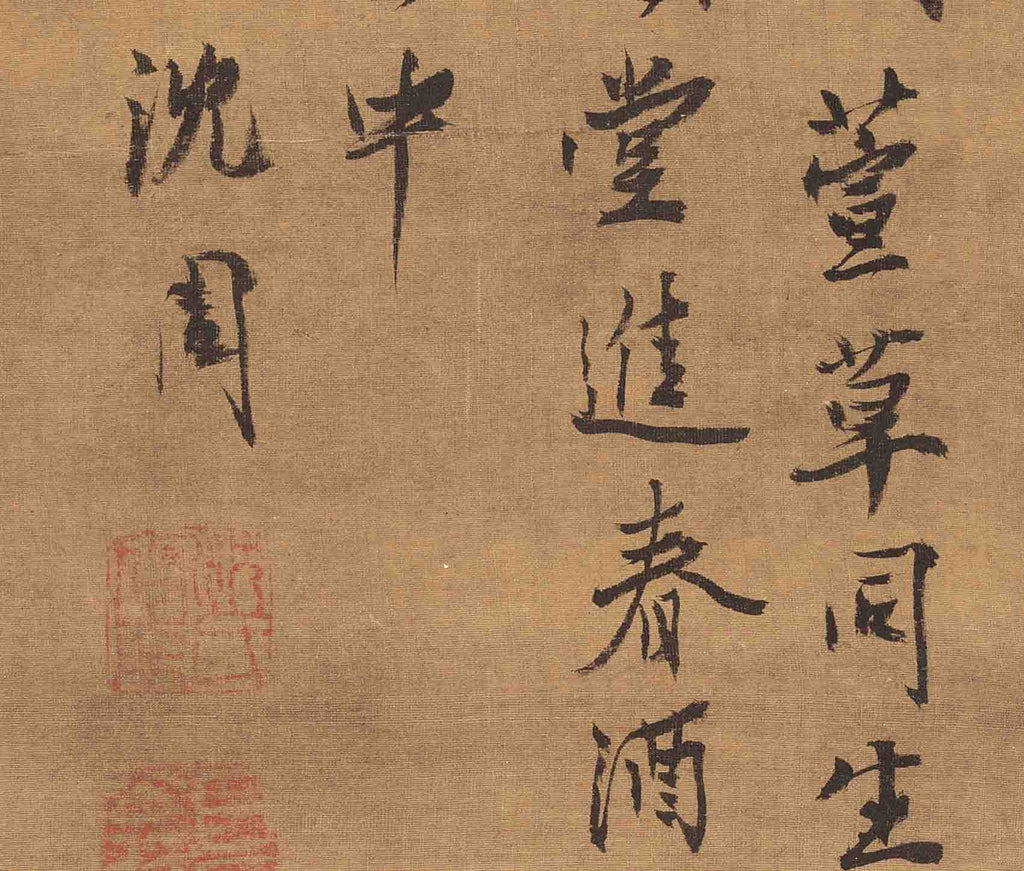 萱草同生
堂進春酒
中
沈周